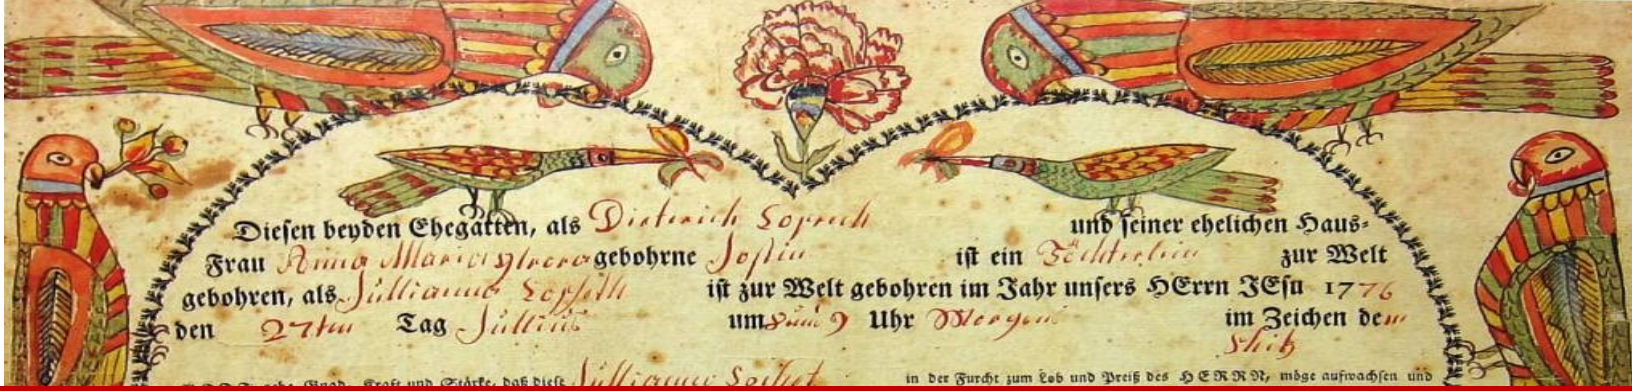 Diesen beyden Ehegatten, als Dieterich und seiner ehelichen Haus=
Frau Anna Maria gebohrne ist ein Töchterlein zur Welt
gebohren, als Jullianna ist zur Welt gebohren im Jahr unsers HErrn JEsu 1776
den 27ten Tag Jullius um 9 Uhr Morgens im Zeichen dem
Schitz
Gnad, Kraft und Stärke, daß diese Jullianna in der Furcht zum Lob und Preiß des HERRN, möge aufwachsen und